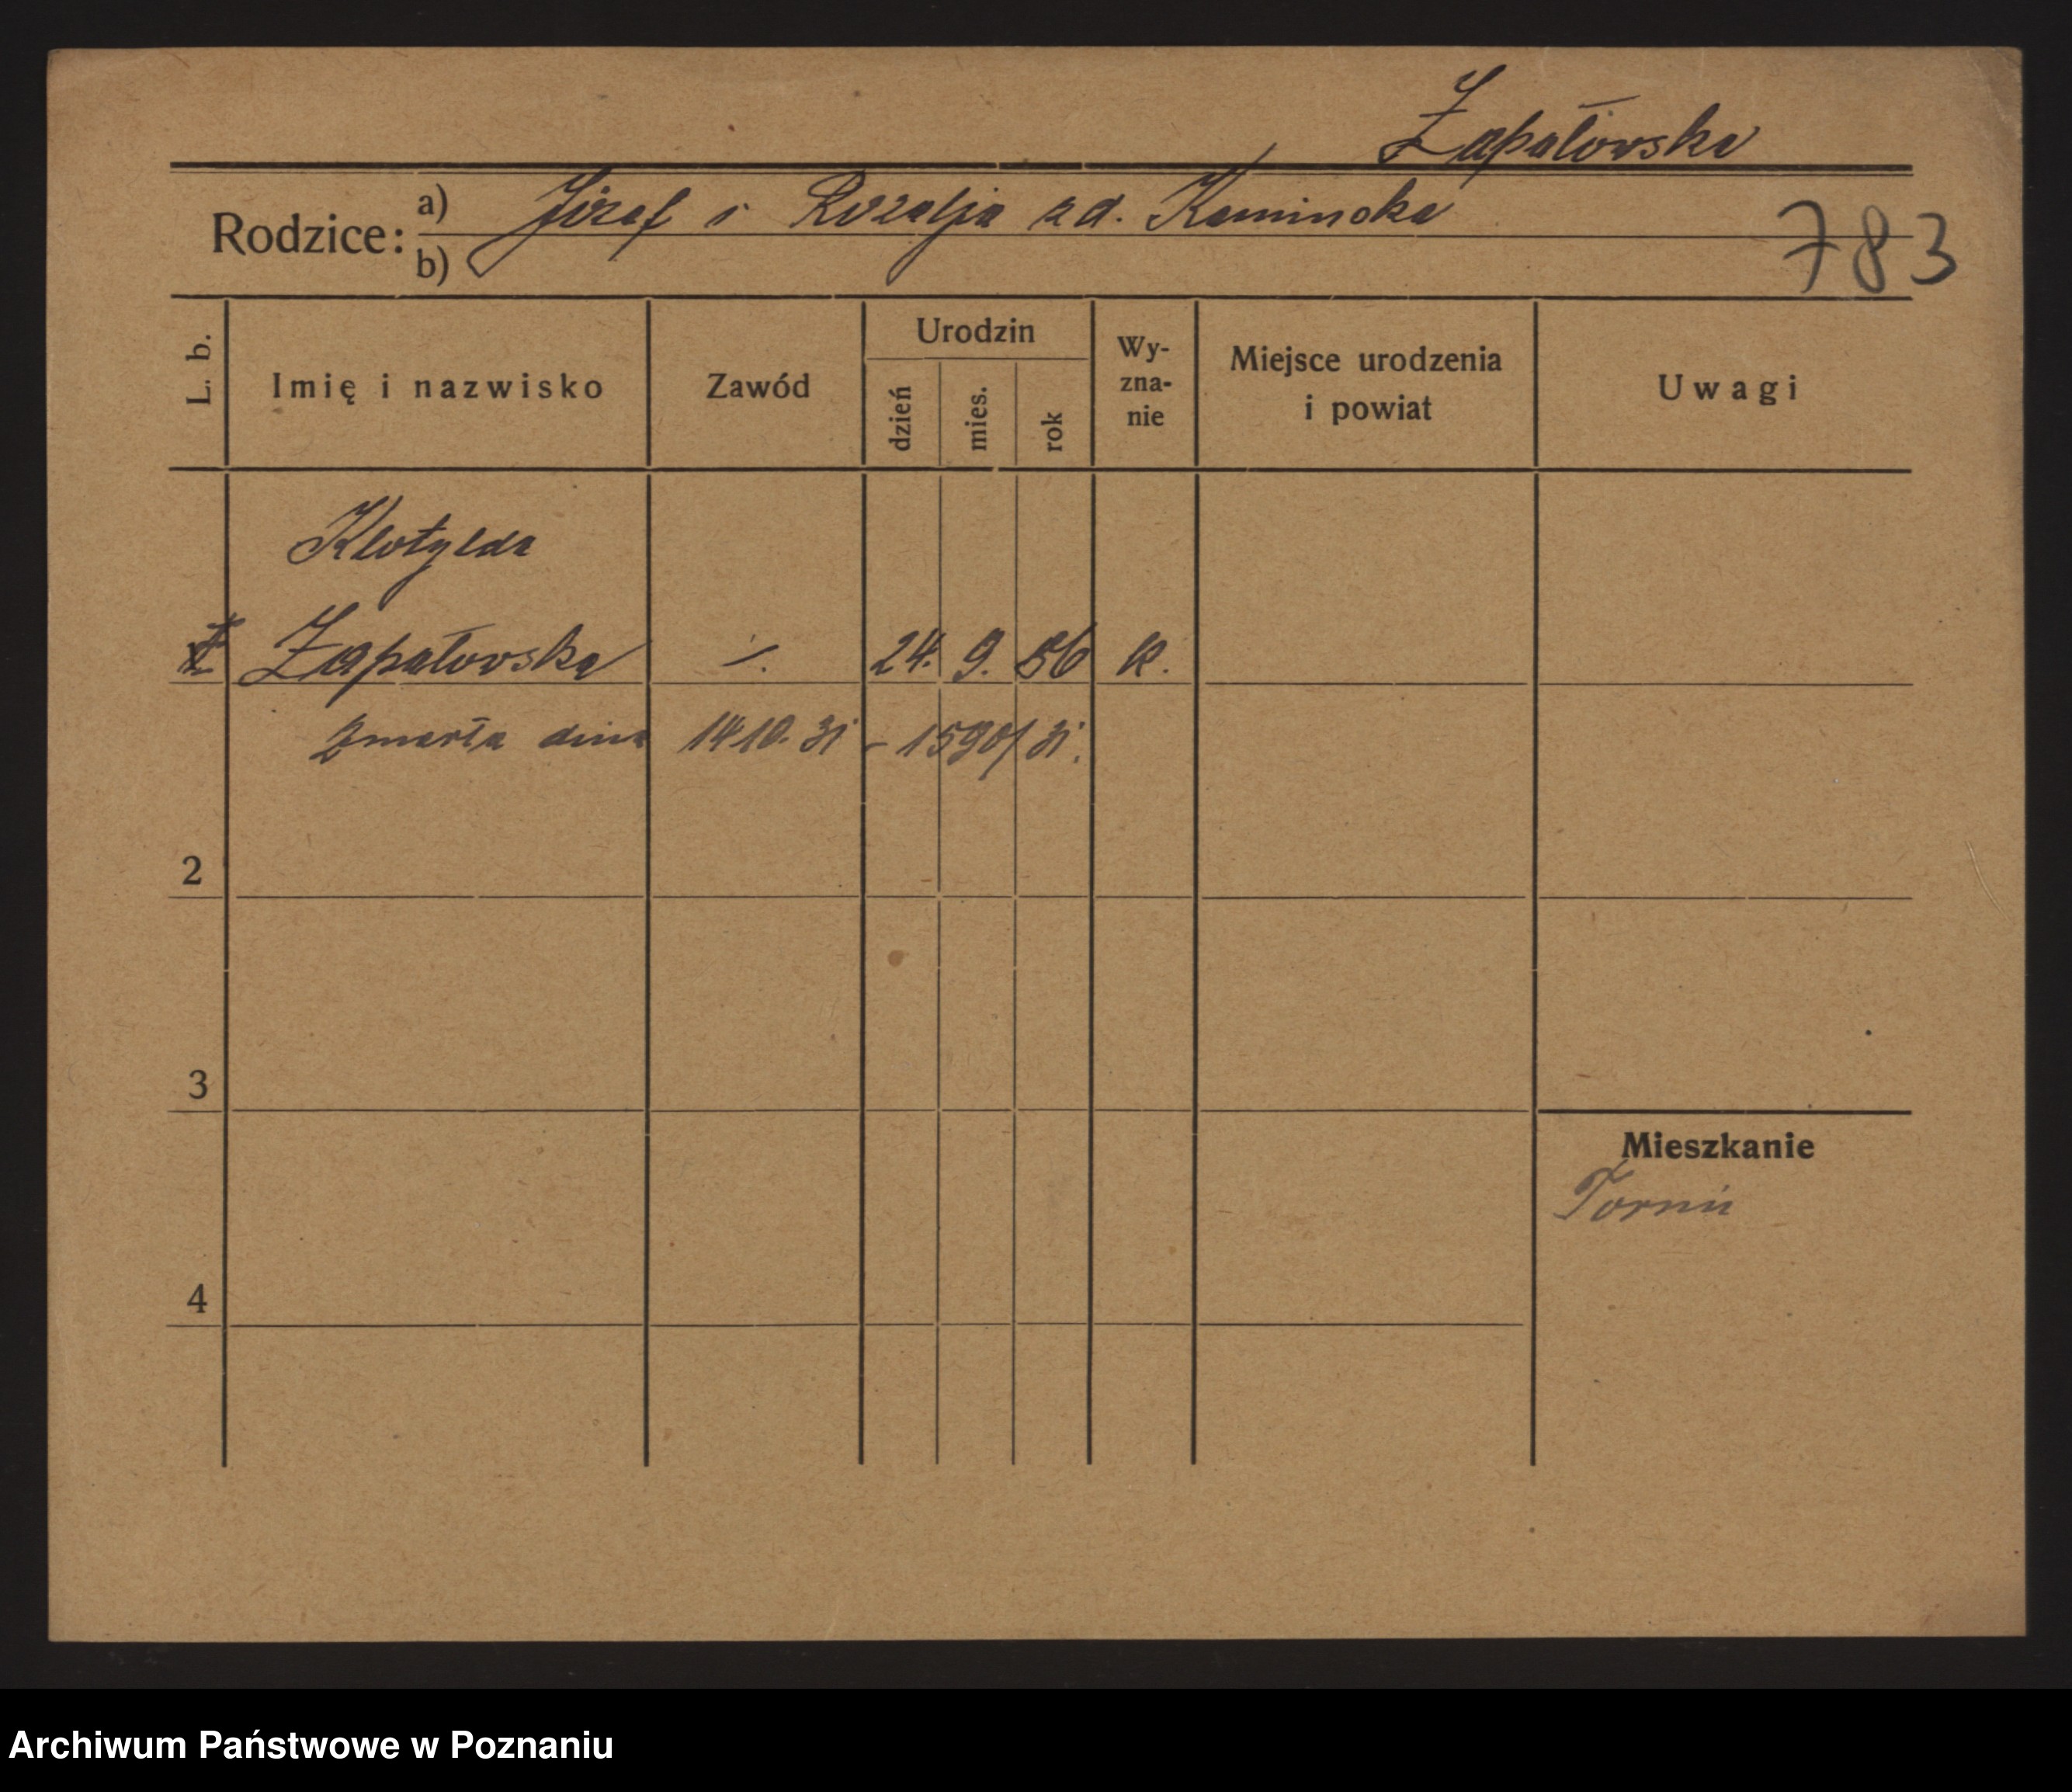 Zapałowska
Rodzice: a) Józef i Rozalja zd. Kamińska
b)
783
L. b. Imię i nazwisko Zawód Urodzin dzień mies. rok Wy-zna-nie Miejsce urodzenia i powiat Uwagi
Klotylda
Zapałowska ·/. 24. 9. 56 k.
zmarła dnia 14 10. 31 - 1590/31.
2
3
Mieszkanie
Toruń
4
Archiwum Państwowe w Poznaniu